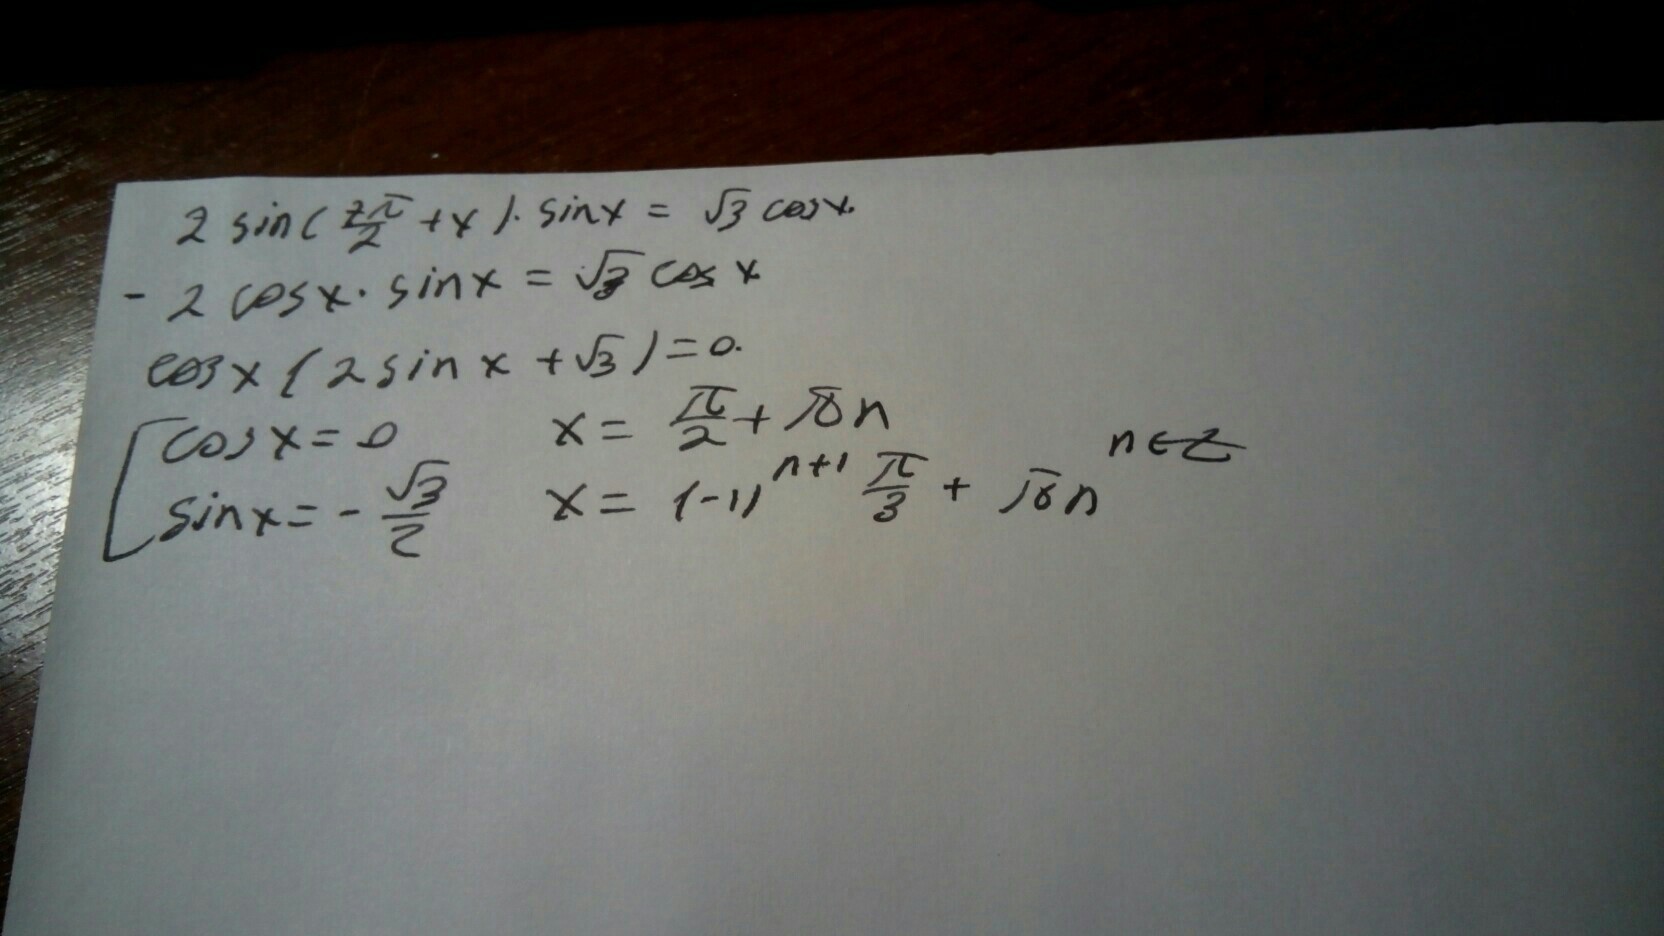 2 sin(7π/2 + x)· sinx = √3 cosx.
- 2 cosx· sinx = √3 cos x
cosx(2 sin x + √3) = 0.
cosx = 0 x = π/2 + πn
sinx = - √3/2 x = (-1)^(n+1) π/3 + πn n∈Z